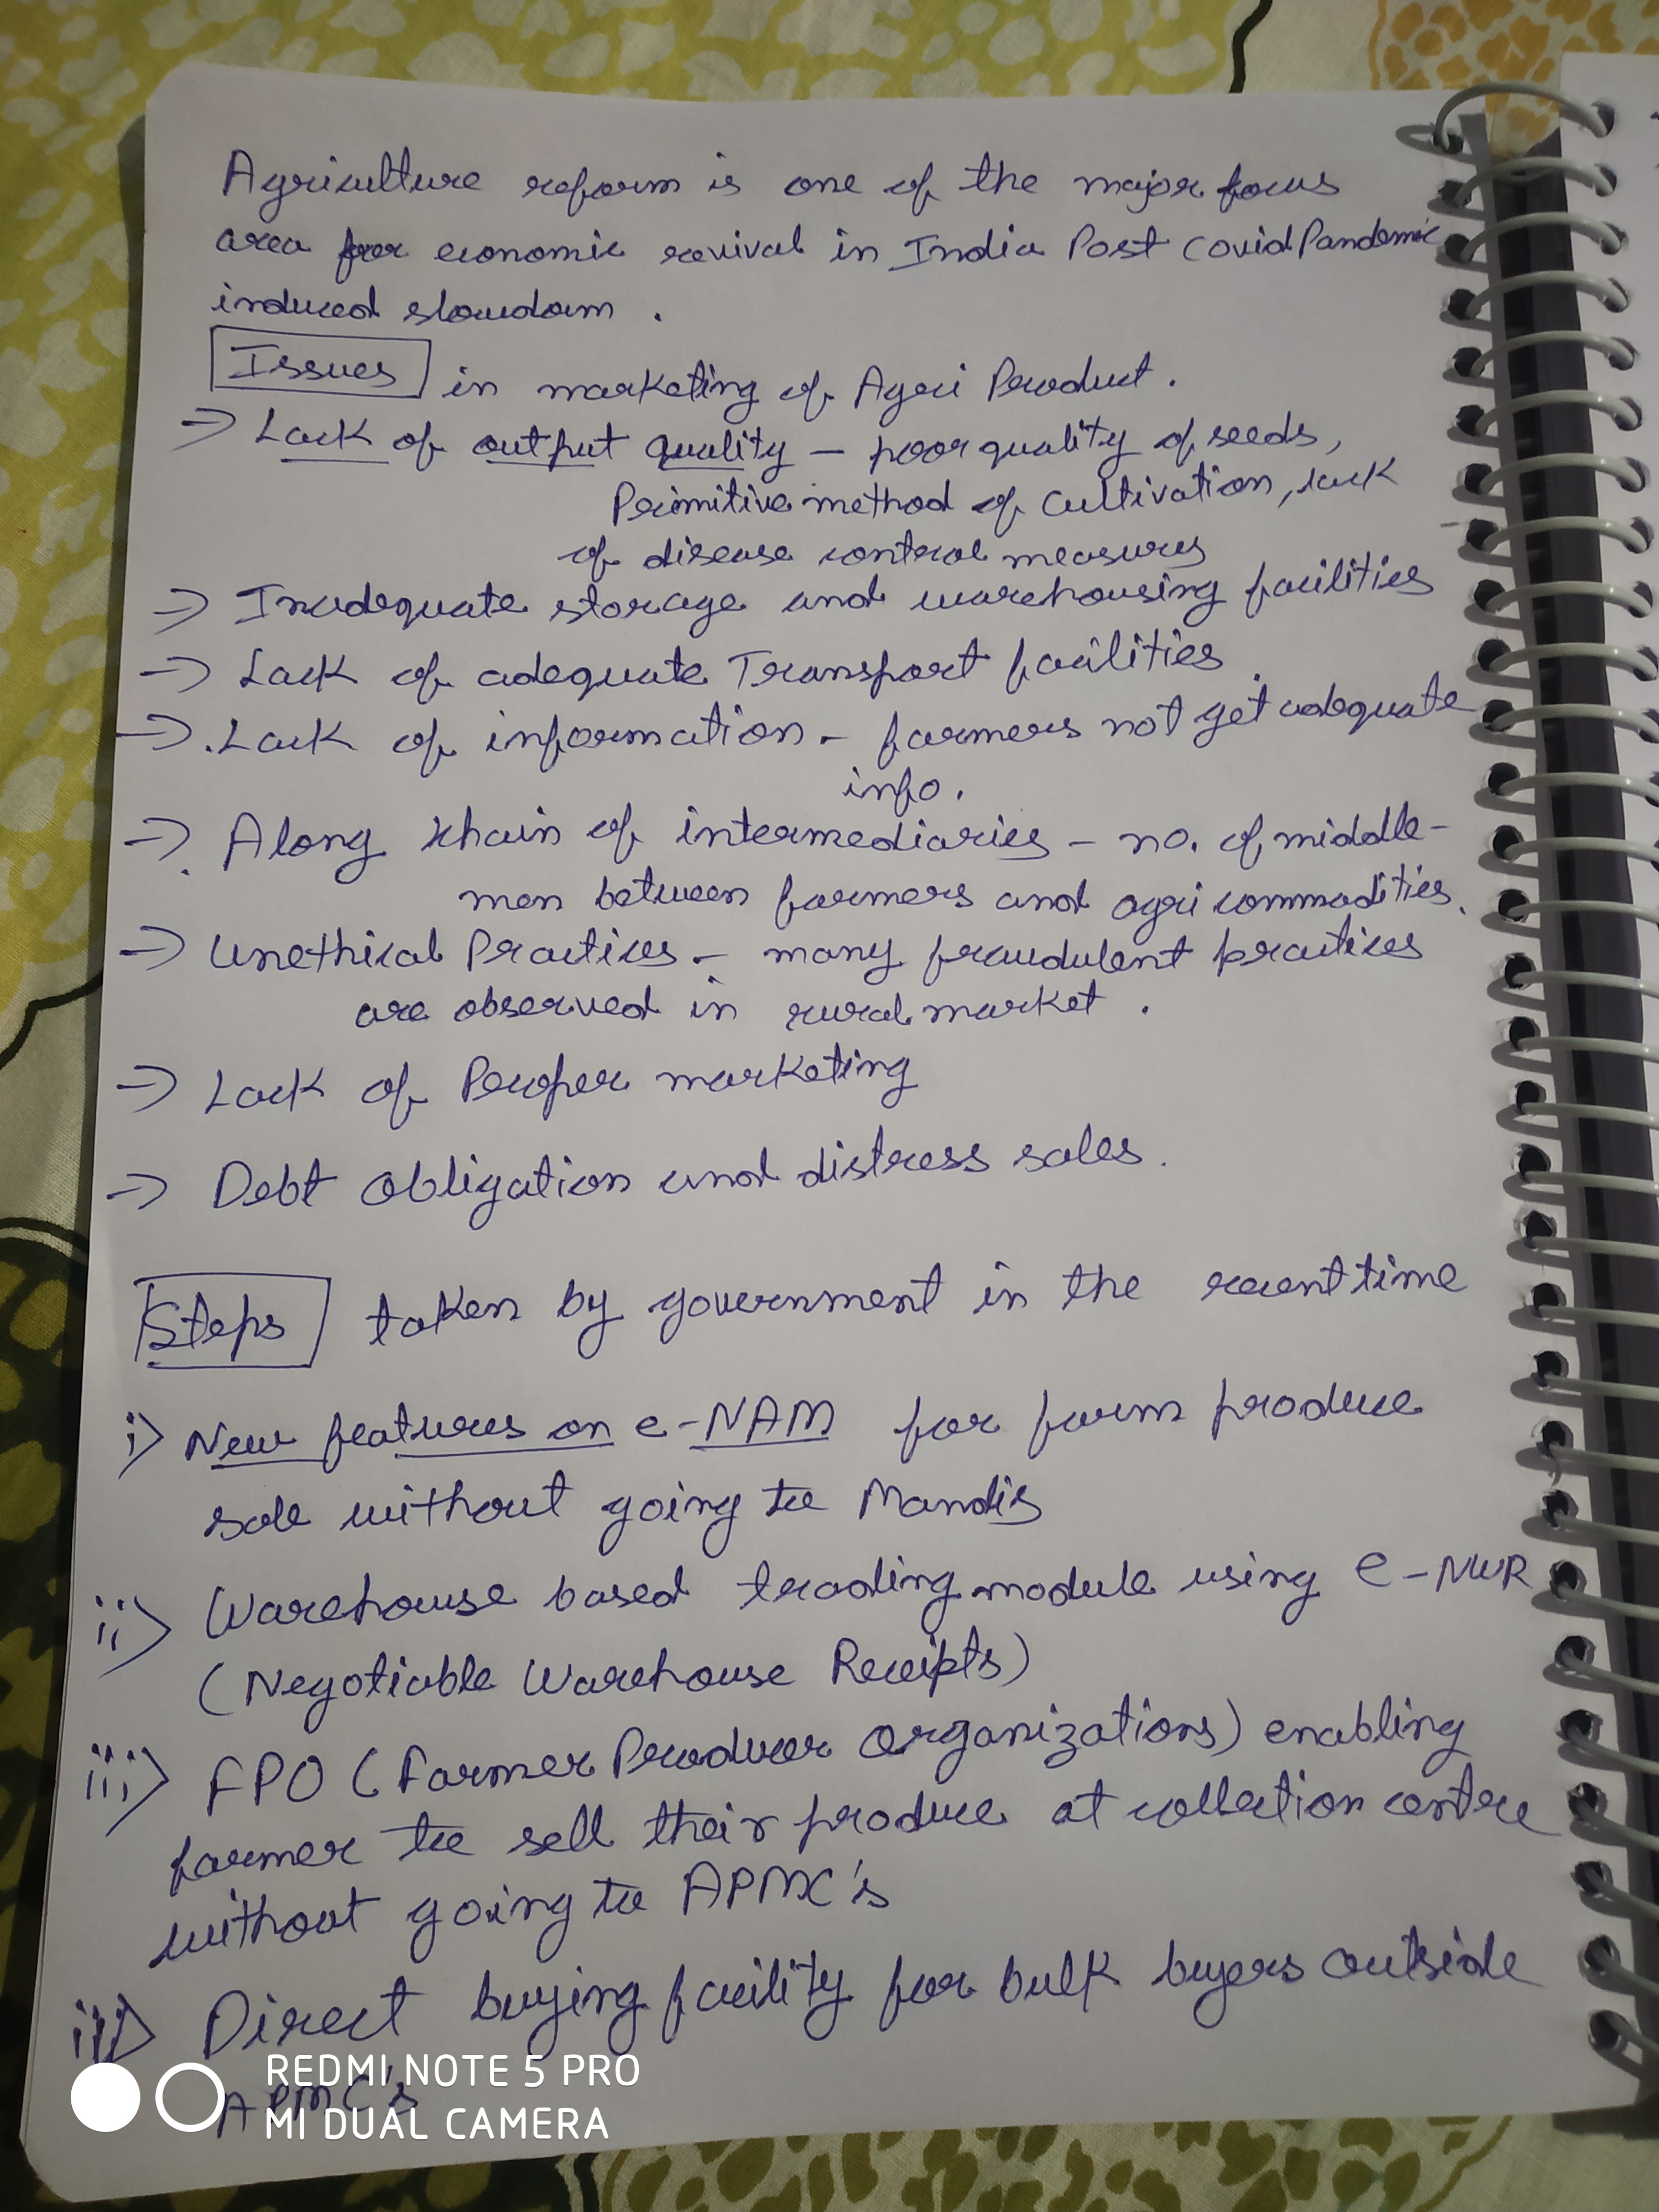 Agriculture reform is one of the major focus
area for economic revival in India Post Covid Pandemic
induced slowdown .
Issues in marketing of Agri Product .
→ Lack of output quality – poor quality of seeds,
Primitive method of cultivation, lack
of disease control measures
→ Inadequate storage and warehousing facilities
→ Lack of adequate Transport facilities .
→ Lack of information – farmers not get adequate
info.
→ Along chain of intermediaries – no. of middle-
men between farmers and agri commodities.
→ Unethical Practices – many fraudulent practices
are observed in rural market .
→ Lack of Proper marketing
→ Debt obligation and distress sales.
Steps taken by government in the recent time
i) New features on e-NAM for farm produce
sale without going to Mandis
ii) Warehouse based trading module using e-NWR
(Negotiable Warehouse Receipts)
iii) FPO (Farmer Producer Organizations) enabling
farmer to sell their produce at collection centre
without going to APMC's
iii) Direct buying facility for bulk buyers outside
APMC's
REDMI NOTE 5 PRO
MI DUAL CAMERA